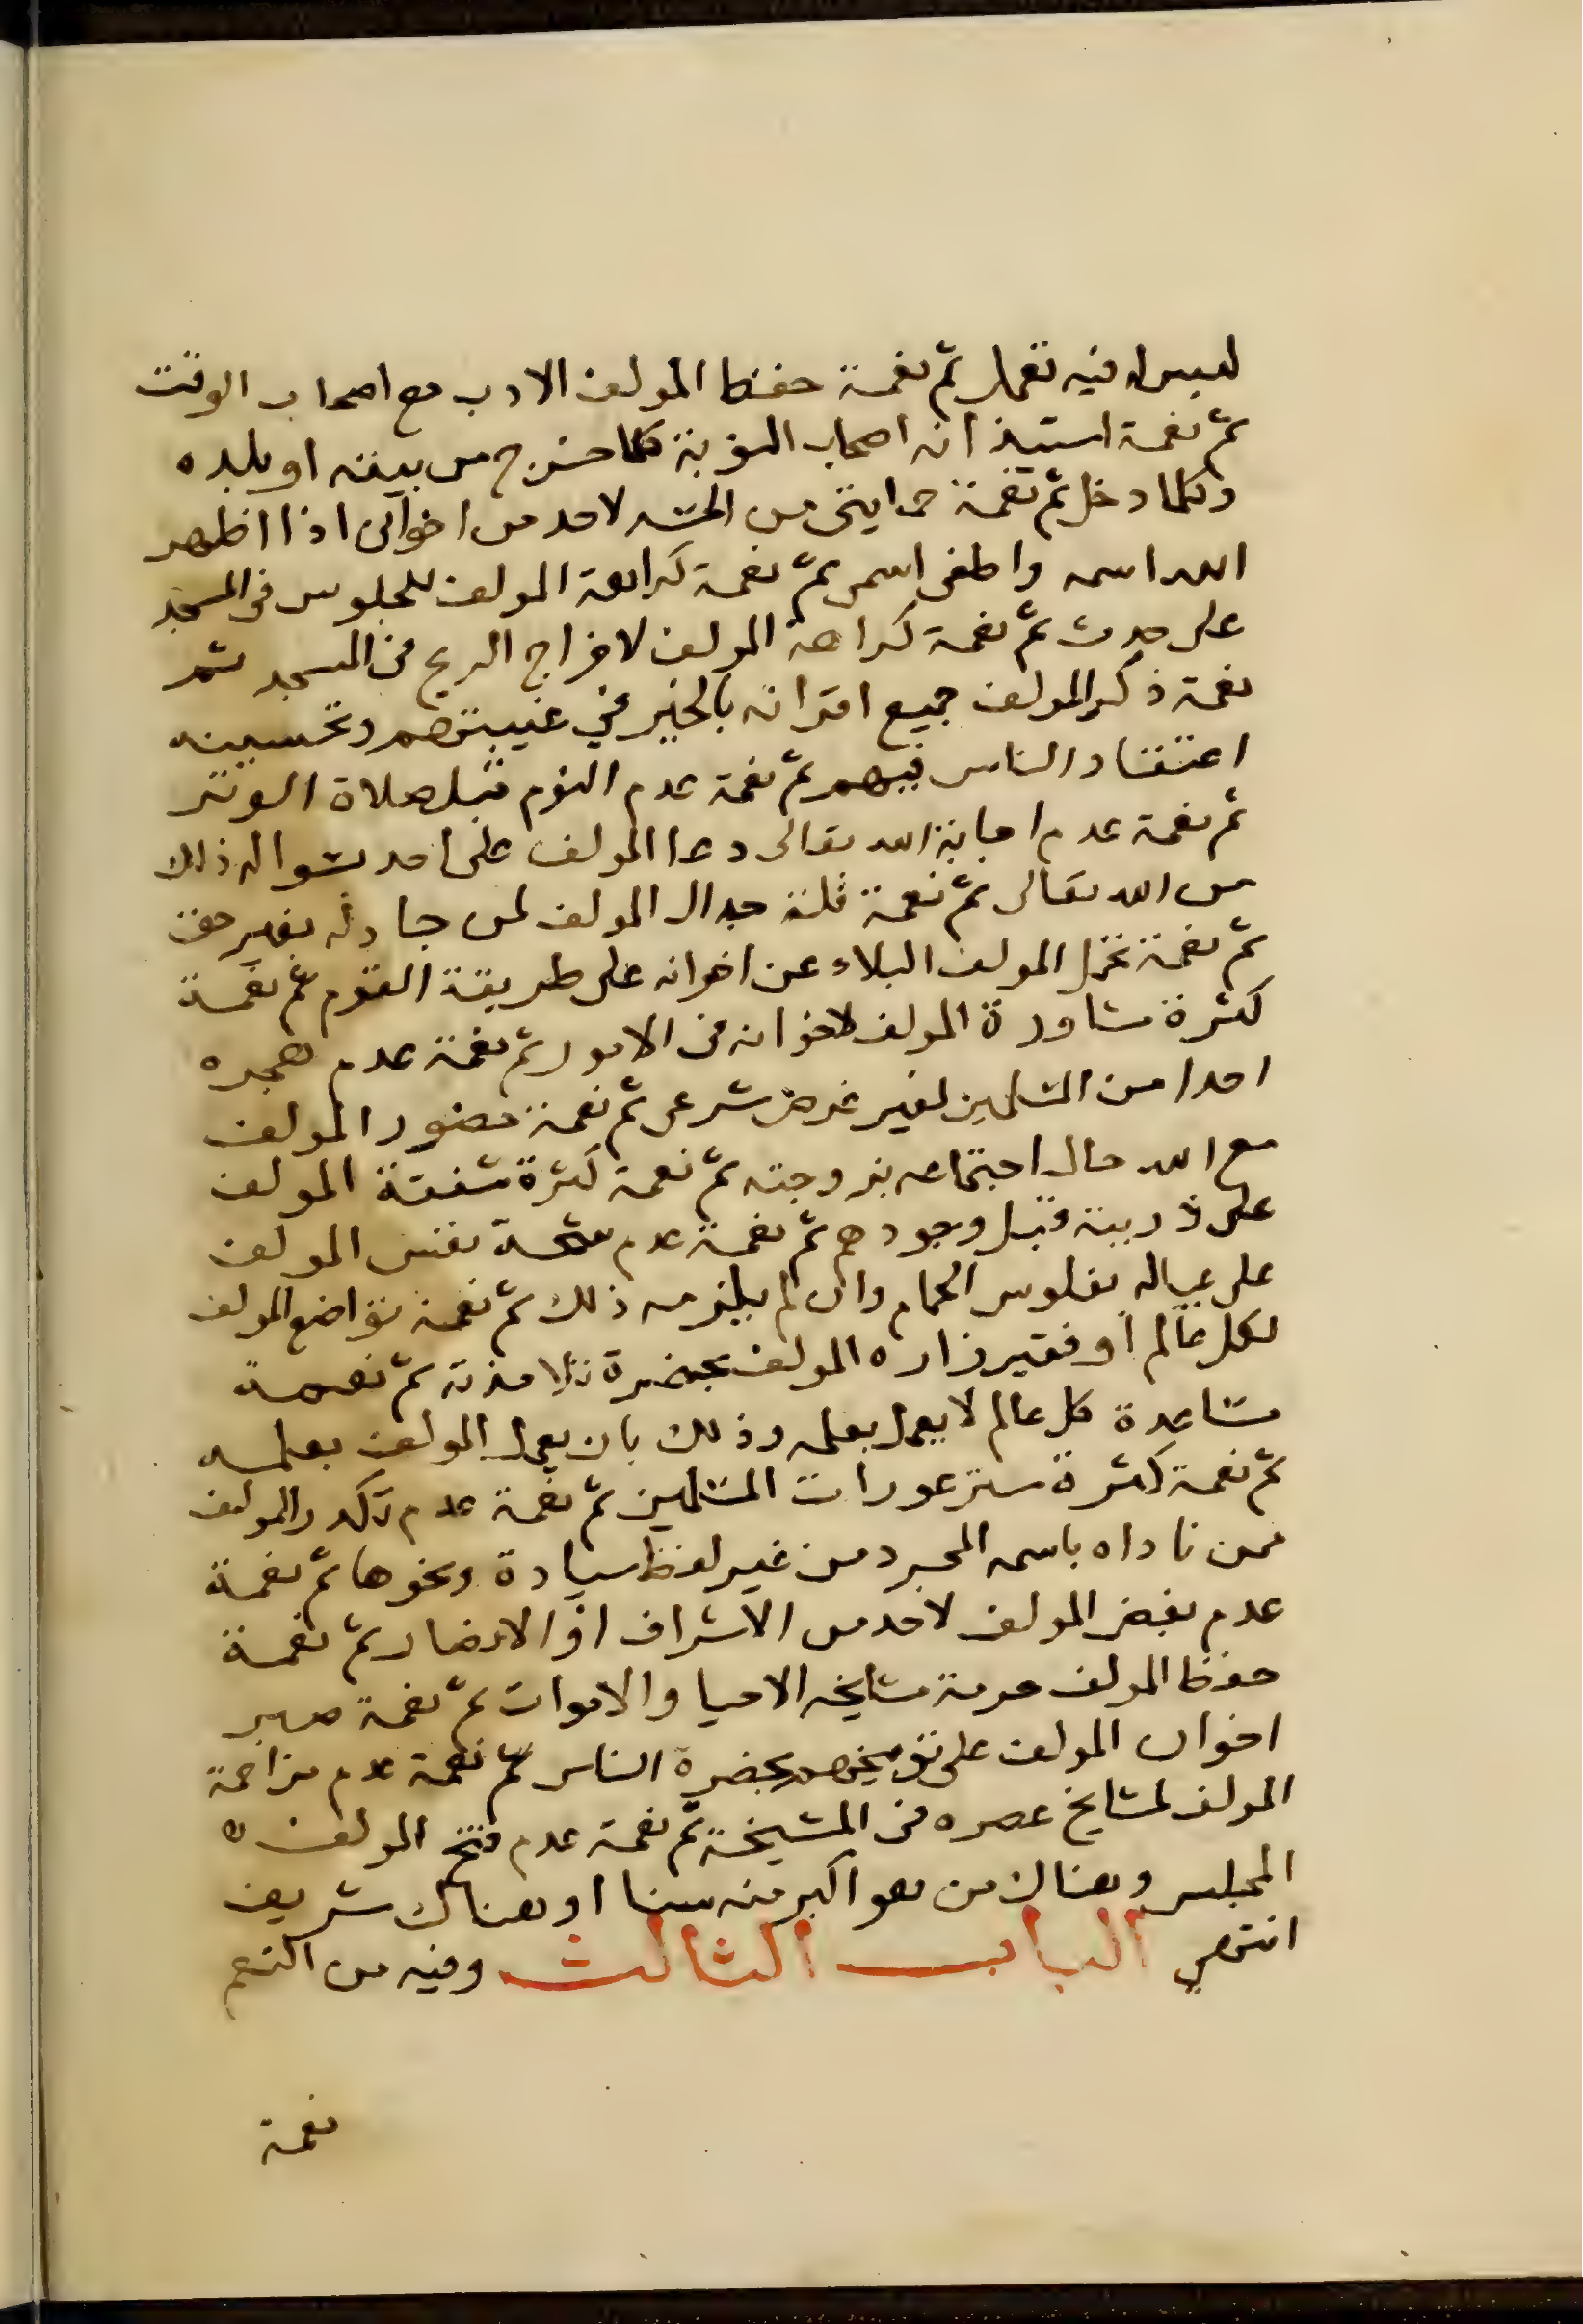 ليس له فيه تعمل ثم نعمة حفظ المولف الادب مع اصحاب الوقت
ثم نعمة استيذانه اصحاب النوبة كلما خرج من بيته او بلده
وكلما دخل ثم نعمة حمايتى من الحسد لاحد من اخوانى اذا اظهر
الله اسمه واطفى اسمى ثم نعمة كراهة المولف للجلوس فى المسجد
على حدث ثم نعمة كراهة المولف لاخراج الريح فى المسجد ثم
نعمة ذكر المولف جميع اقرانه بالخير في غيبتهم وتحسينه
اعتقاد الناس فيهم ثم نعمة عدم النوم قبل صلاة الوتر
ثم نعمة عدم اجابة الله تعالى دعا المولف على احد بسواله ذلك
من الله تعالى ثم نعمة قلة جدال المولف لمن جادله بغير حق
ثم نعمة تحمل المولف البلاء عن اخوانه على طريقة القوم ثم نعمة
كثرة مشاورة المولف لاخوانه فى الامور ثم نعمة عدم هجره
احدا من المسلمين لغير غرض شرعى ثم نعمة حضور المولف
مع الله حال اجتماعه بزوجته ثم نعمة كثرة شفقة المولف
على ذريته قبل وجودهم ثم نعمة عدم شحة نفس المولف
على عياله بفلوس الحمام وان لم يلزمه ذلك ثم نعمة تواضع المولف
لكل عالم او فقير زاره المولف بحضرة تلامذته ثم نعمة
مساعدة كل عالم لا يعمل بعلمه وذلك بان يعمل المولف بعلمه
ثم نعمة كثرة ستر عورات المسلمين ثم نعمة عدم تكدر المولف
ممن ناداه باسمه المجرد من غير لفظ سيادة ونحوها ثم نعمة
عدم بغض المولف لاحد من الاشراف او الانصار ثم نعمة
حفظ المولف حرمة مشايخه الاحيا والاموات ثم نعمة صبر
اخوان المولف على توبيخهم بحضرة الناس ثم نعمة عدم مزاحمة
المولف لمشايخ عصره فى المشيخة ثم نعمة عدم فتح المولف
المجلس وهناك من هو اكبر منه سنا او هناك شريف
انتهي الباب الثالث وفيه من النعم
نعمة